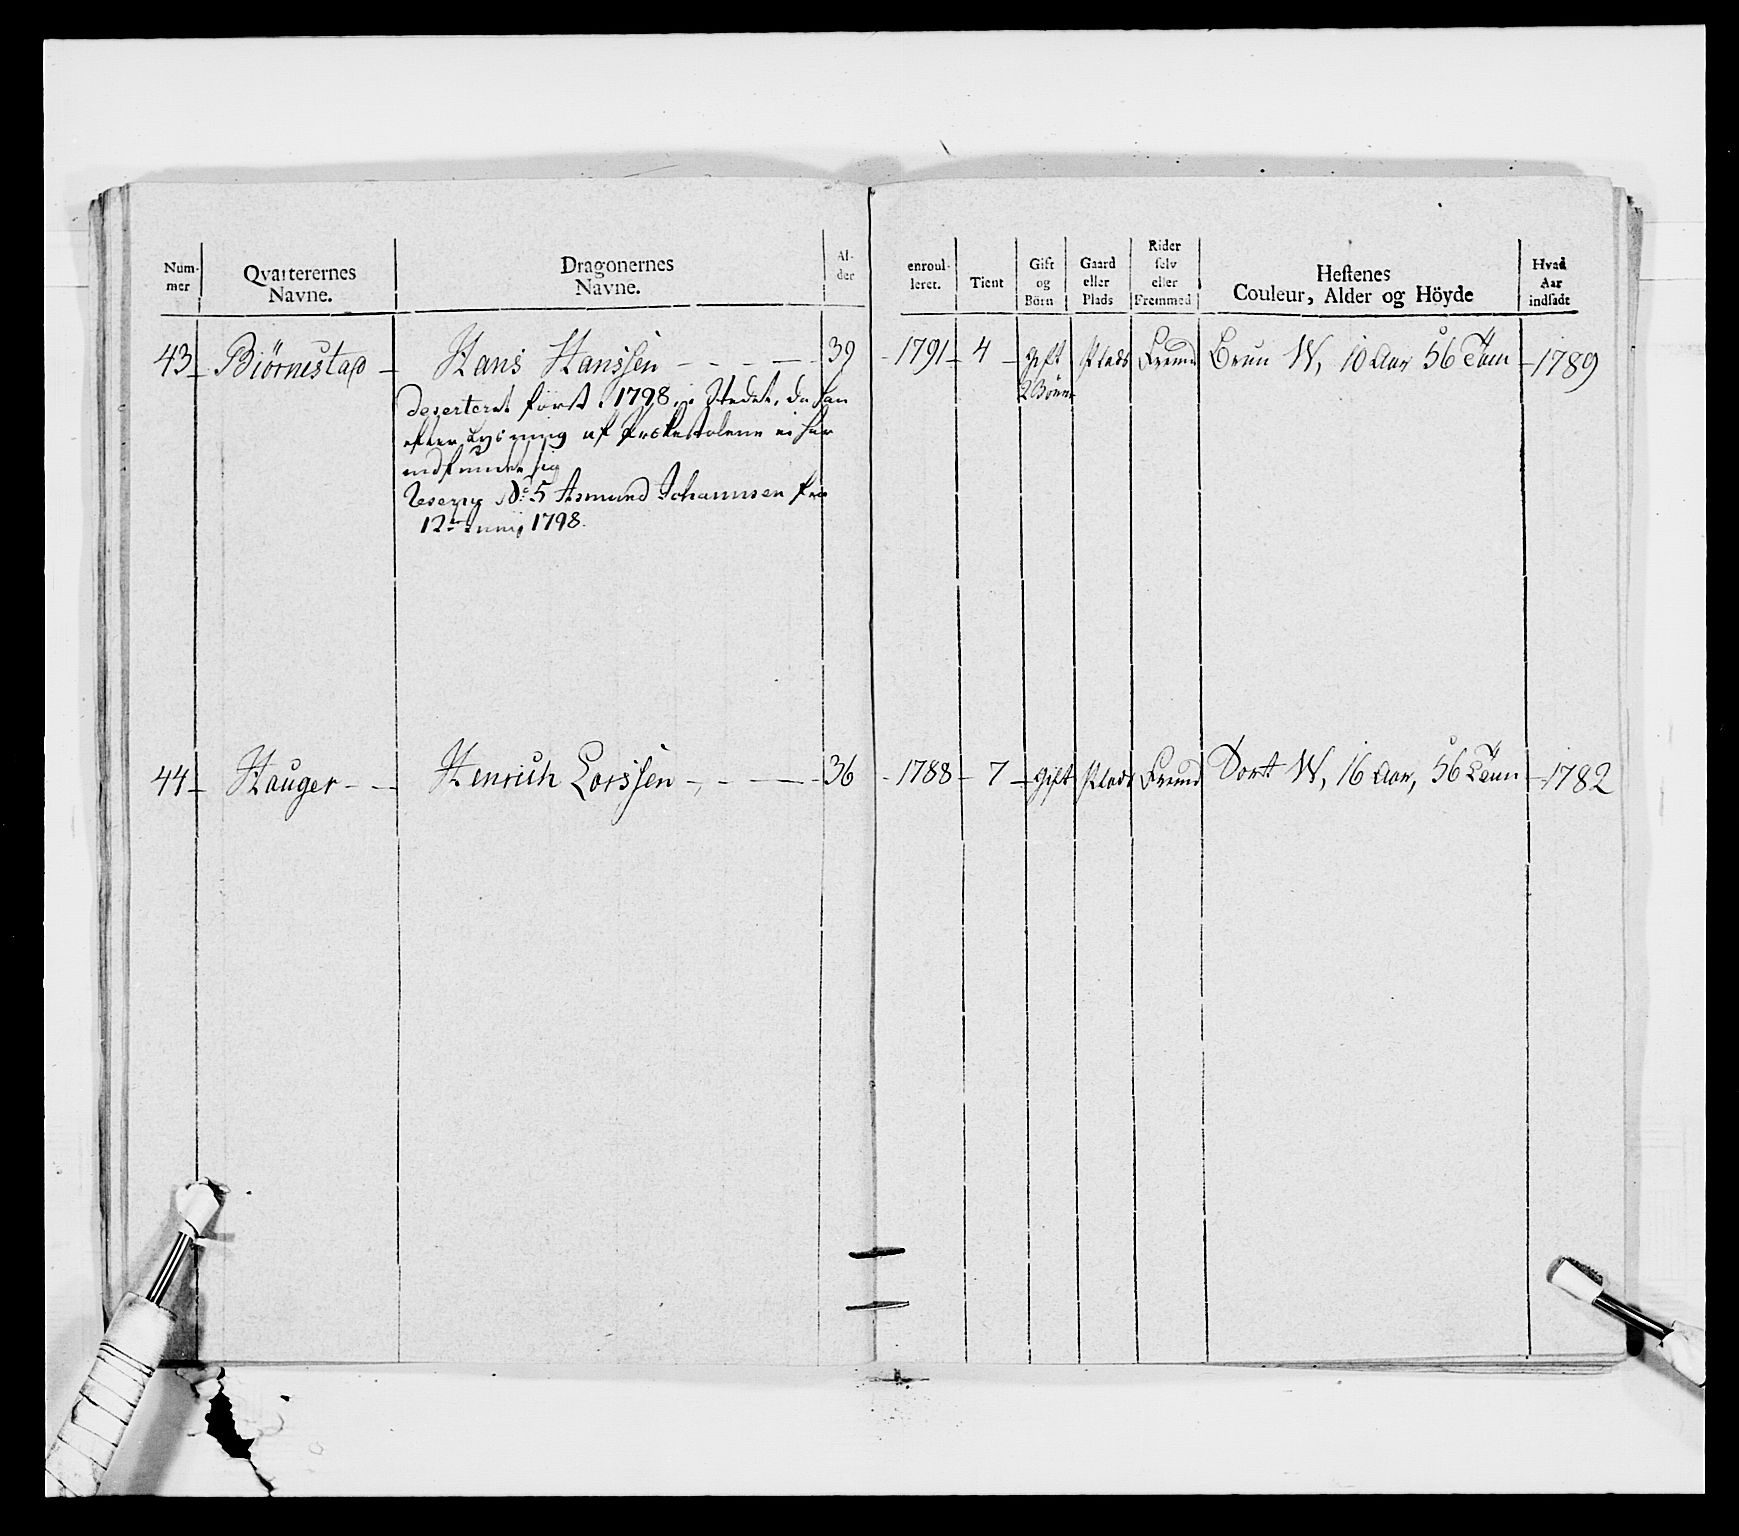 Num-
mer
Qvarterernes
Navne.
Dragonernes
Navne.
Al-
der
enroul-
leret.
Tient
Gift
og
Börn
Gaard
eller
Plads
Rider
selv
eller
Fremmed
Hestenes
Couleur, Alder og Höyde
Hvad
Aar
indsadt
43 Biörnestad Hans Hanssen 39 1791 4 gift Plads Fremd Brun W, 10 Aar 56 Tom 1789
2 Börn
deserteret först 1798, i Stedet, da han
efter Lysning af Prækestolene ei har
indfundet sig
Reserv No 5 Asmund Johannsen fra
12te Junij 1798.
44 Hauger Henrich Larssen 36 1788 7 gift Plads Fremd Sort W, 16 Aar, 56 Tom 1782